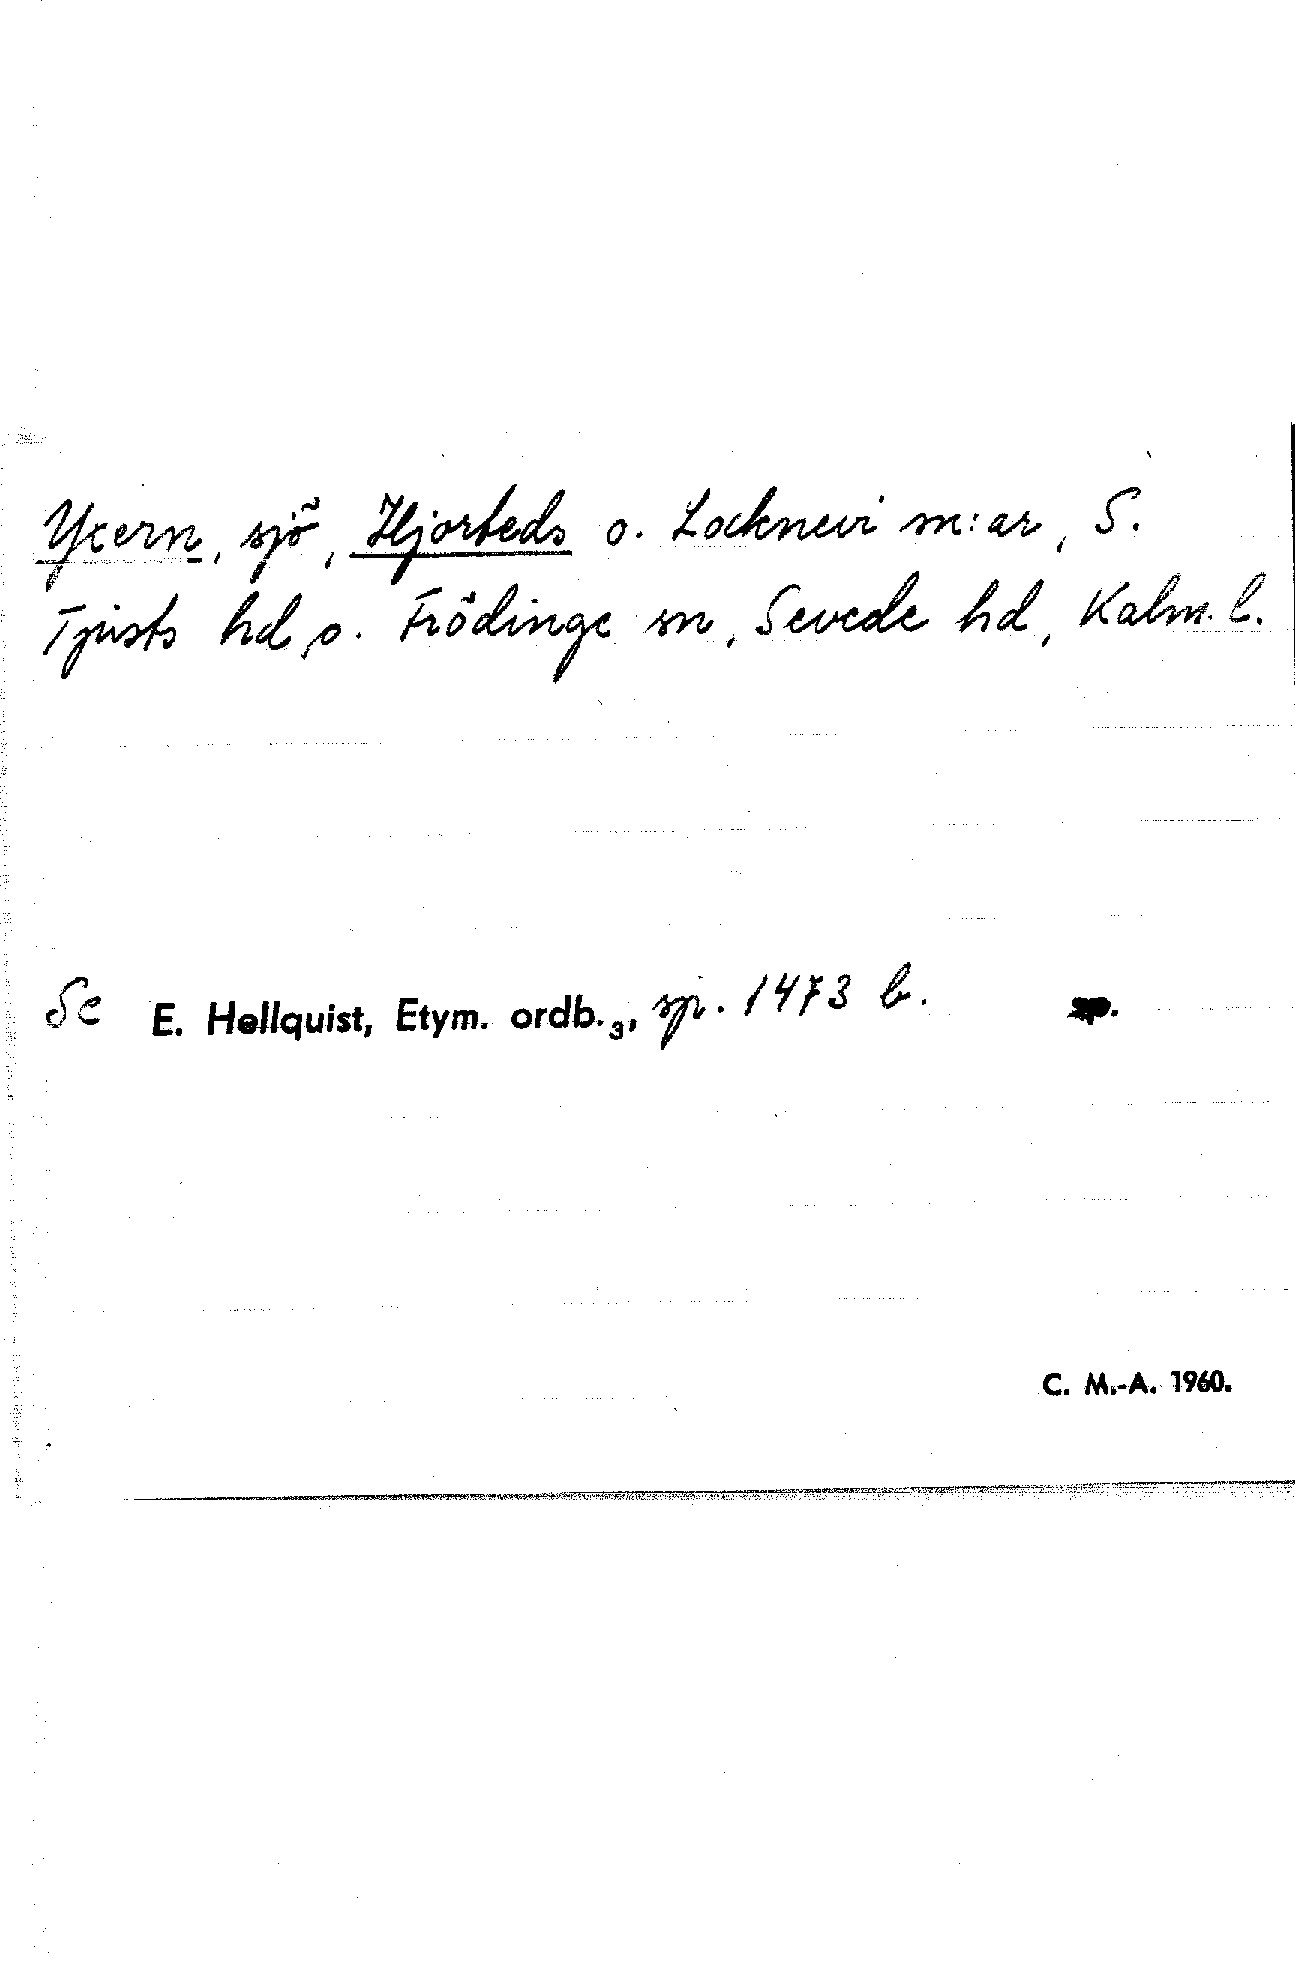 Yxern, sjö, Hjorteds o. Locknevi sn:ar, S.
Tjusts hd o. Frödinge sn, Sevede hd, Kalm. l.
Se E. Hellquist, Etym. ordb.₃, sp. 1473 b.
C. M.-A. 1960.